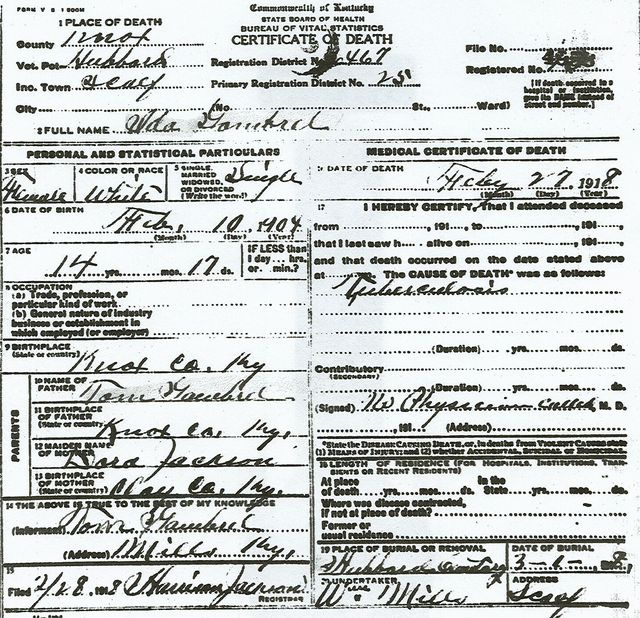 FORM V S 1
Commonwealth of Kentucky
STATE BOARD OF HEALTH
BUREAU OF VITAL STATISTICS
CERTIFICATE OF DEATH
1 PLACE OF DEATH
County Knox
Vot. Pct. Hubbard
Inc. Town Scalf
City (No. St., Ward)
Registration District No. 467
Primary Registration District No. 25
File No.
Registered No.
[If death occurred in a hospital or institution, give its NAME instead of street and number.]
2 FULL NAME Gambrel
PERSONAL AND STATISTICAL PARTICULARS
3 SEX Female
4 COLOR OR RACE White
5 SINGLE, MARRIED WIDOWED, OR DIVORCED (Write the word) Single
6 DATE OF BIRTH Feb, 10, 1904
(Month) (Day) (Year)
7 AGE
14 yrs. mos. 17 ds.
IF LESS than 1 day... hrs. or... min.?
8 OCCUPATION
(a) Trade, profession, or particular kind of work
(b) General nature of industry business or establishment in which employed (or employer)
9 BIRTHPLACE
(State or country) Knox Co. Ky
PARENTS
10 NAME OF FATHER Tom Gambrel
11 BIRTHPLACE OF FATHER (State or country) Knox Co. Ky.
12 MAIDEN NAME OF MOTHER Jackson
13 BIRTHPLACE OF MOTHER (State or country) Clay Co. Ky.
14 THE ABOVE IS TRUE TO THE BEST OF MY KNOWLEDGE
(Informant) Tom Gambrel
(Address) Mills Ky,
15
Filed 2/28 1918 Harrison Jackson
REGISTRAR
MEDICAL CERTIFICATE OF DEATH
DATE OF DEATH
Feby 27, 1918
(Month) (Day) (Year)
17 I HEREBY CERTIFY, That I attended deceased
from , 191 , to , 191 ,
that I last saw h alive on , 191 ,
and that death occurred on the date stated above
at m. The CAUSE OF DEATH* was as follows:
Tuberculosis
(Duration) yrs. mos. ds.
Contributory
(SECONDARY)
(Duration) yrs. mos. ds.
(Signed) No Physician called, M. D.
, 191 (Address)
*State the DISEASE CAUSING DEATH, or, in deaths from VIOLENT CAUSES state (1) MEANS OF INJURY; and (2) whether ACCIDENTAL, SUICIDAL or HOMICIDAL.
18 LENGTH OF RESIDENCE (FOR HOSPITALS, INSTITUTIONS, TRANSIENTS OR RECENT RESIDENTS)
At place of death yrs. mos. ds. In the State yrs. mos. ds.
Where was disease contracted, if not at place of death?
Former or usual residence
19 PLACE OF BURIAL OR REMOVAL
Hubbard
DATE OF BURIAL
3-1-, 8,
20 UNDERTAKER
Mills
ADDRESS
Scalf